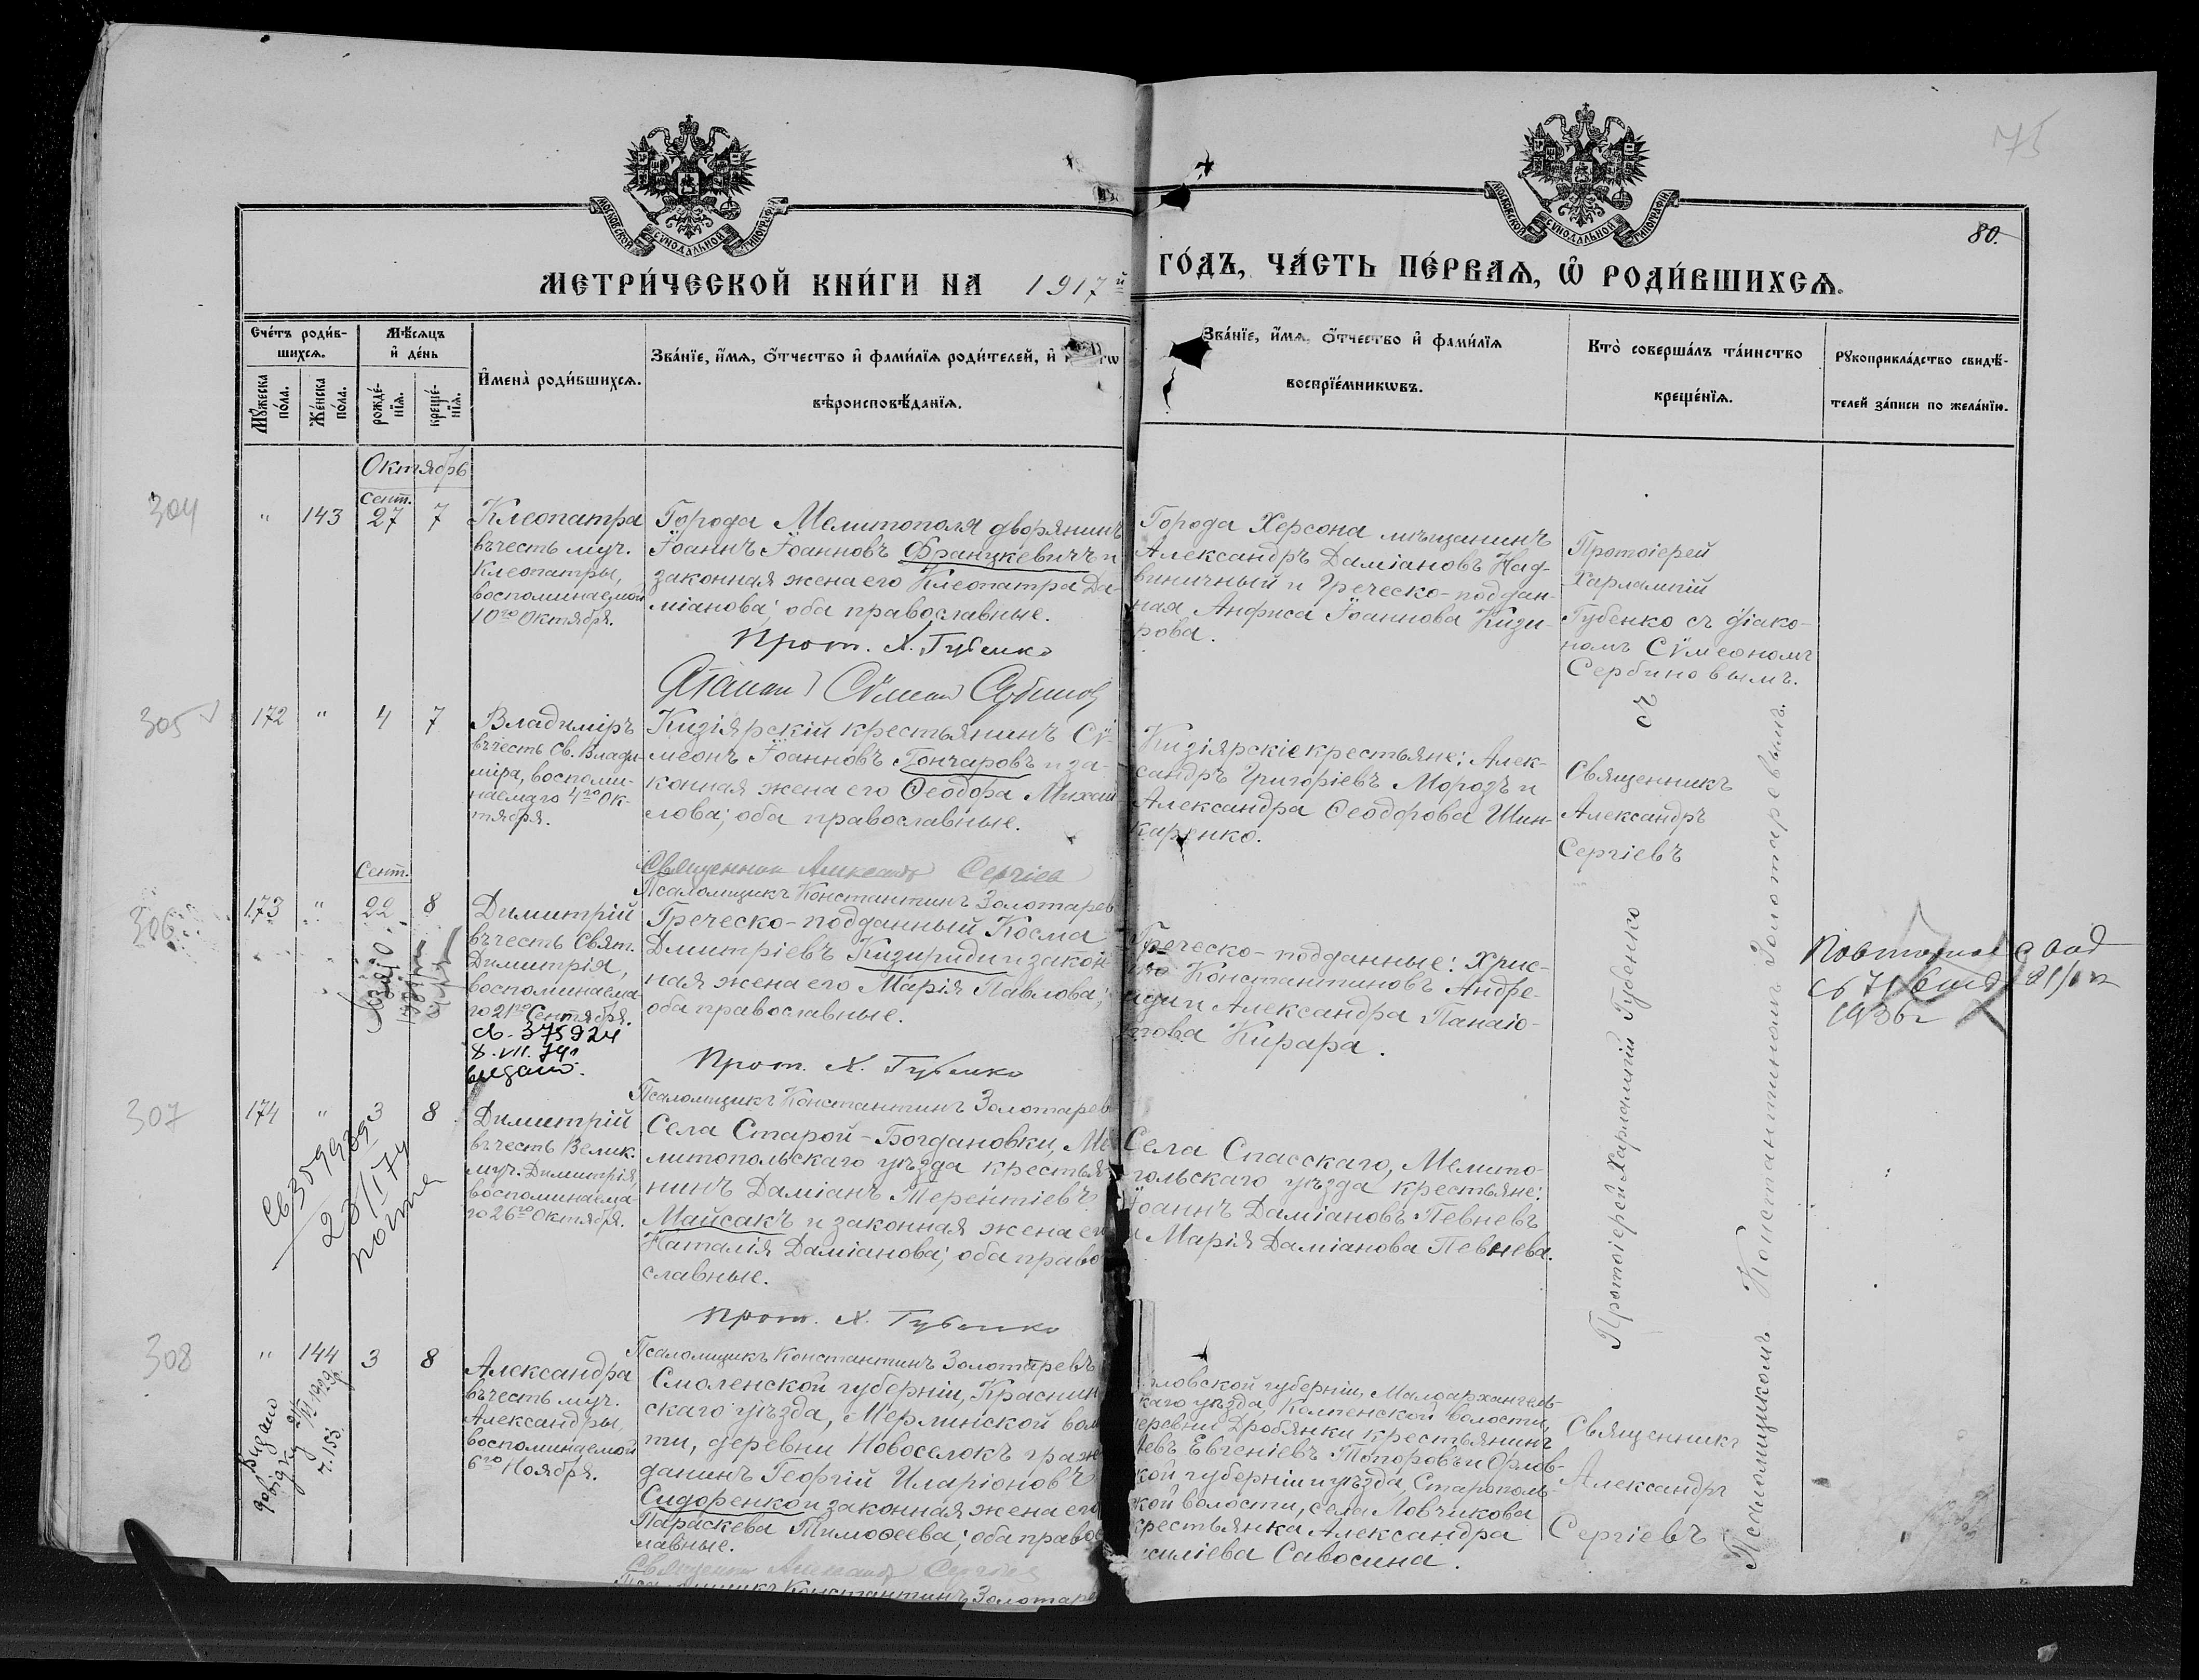 75
80.
МОСКОВСКОЙ СѴНОДАЛЬНОЙ ТИПОГРАФІИ
МОСКОВСКОЙ СѴНОДАЛЬНОЙ ТИПОГРАФІИ
МЕТРИ́ЧЕСКОЙ КНИ́ГИ НА 1917й
ГО́ДЪ, ЧА́СТЬ ПЕ́РВАѦ, Ѽ РОДИ́ВШИХСѦ.
Сче́тъ роди́в-
шихсѧ.
Мꙋ́жеска
по́ла.
Же́нска
по́ла.
Мѣ́сѧцъ
и҆ де́нь
рожде́-
нїѧ.
креще́-
нїѧ.
И҆мена̀ роди́вшихсѧ.
Зва́нїе, и҆́мѧ, ѻ҆́тчество и҆ фами́лїѧ роди́телей, и҆
вѣроисповѣ́данїѧ.
Зва́нїе, и҆́мѧ, ѻ҆́тчество и҆ фами́лїѧ
воспрїе́мникѡвъ.
Кто̀ соверша́лъ та́инство
креще́нїѧ.
Рꙋкоприкла́дство свидѣ́-
телей за́писи по жела́нїю.
Октябрь
304
"
143
Сент.
27
7
Клеопатра
въ честь муч.
Клеопатры,
воспоминаемой
10го Октября.
Города Мелитополя дворянинъ
Іоаннъ Іоанновъ Францкевичъ и
законная жена его Клеопатра Да-
міанова; оба православные.
Прот. Х. Губенко
Діаконъ Сѵмеонъ Сербиновъ
Города Херсона мѣщанинъ
Александръ Даміановъ Над-
виничный и Греческо-поддан-
ная Анфиса Іоаннова Кизи-
рова.
Протоіерей
Харлампій
Губенко съ діако-
номъ Сѵмеономъ
Сербиновымъ.
305
172
"
4
7
Владиміръ
въ честь Св. Влади-
міра, воспоми-
наемаго 4го Ок-
тября.
Кизіярскій крестьянинъ Сѵ-
меонъ Іоанновъ Гончаровъ и за-
конная жена его Ѳеодора Михаи-
лова; оба православные.
Священникъ Александръ Сергіевъ
Псаломщикъ Константинъ Золотарев
Кизіярскіе крестьяне: Алек-
сандръ Григоріевъ Морозъ и
Александра Ѳеодорова Шин-
каренко.
Священникъ
Александръ
Сергіевъ
съ
306
173
"
Сент.
22
8
Димитрій
въ честь Свят.
Димитрія,
воспоминаема-
го 21го Сентября.
св. 375924
8. VII. 741
видано.
Греческо-подданный Косма
Дмитріевъ Кизириди и закон-
ная жена его Марія Павлова;
оба православные.
Прот. Х. Губенко
Псаломщикъ Константинъ Золотарев
Греческо-подданные: Хрис-
Константиновъ Андре-
и Александра Панаіо-
това Кирара.
Протоіерей Харлампій Губенко
1936г
307
174
"
3
8
св 3599809
23/I 74
почта
Димитрій
въ честь Велик.
муч. Димитрія,
воспоминаема-
го 26го Октября.
Села Старой-Богдановки, Ме-
литопольскаго уѣзда крестья-
нинъ Даміанъ Терентіевъ
Майсакъ и законная жена его
Наталія Даміанова; оба право-
славные.
Прот. Х. Губенко
Псаломщикъ Константинъ Золотаревъ
Села Спасскаго, Мелито-
польскаго уѣзда крестьяне:
Іоаннъ Даміановъ Певневъ
и Марія Даміанова Певнева.
308
"
144
3
8
Видано
Александра
въ честь муч.
Александры,
воспоминаемой
6го Ноября.
Смоленской губерніи, Краснин-
скаго уѣзда, Мерлинской волос-
ти, деревни Новоселокъ граж-
данинъ Георгій Иларіоновъ
Сидоренко и законная жена его
Параскева Тимоѳеева; оба правос-
лавные.
Священникъ Александръ Сергіевъ
Псаломщикъ Константинъ Золотаре
Орловской губерніи, Малоархангель-
скаго уѣзда, Колпенской волости,
деревни Дробянки крестьянинъ
Левъ Евгеніевъ Топоровъ и Орлов-
ской губерніи и уѣзда, Старополь-
ской волости, села Ловчикова
крестьянка Александра
Василіева Савосина.
Священникъ
Александръ
Сергіевъ
Псаломщикомъ Константиномъ Золотаревымъ.